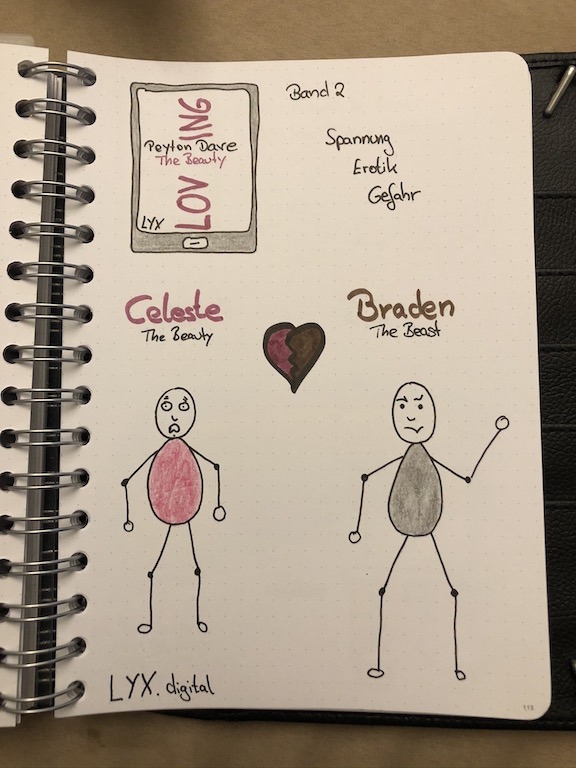 Band 2
LOVING
Peyton Dare
The Beauty
LYX
Spannung
Erotik
Gefahr
Celeste
The Beauty
Braden
The Beast
LYX.digital